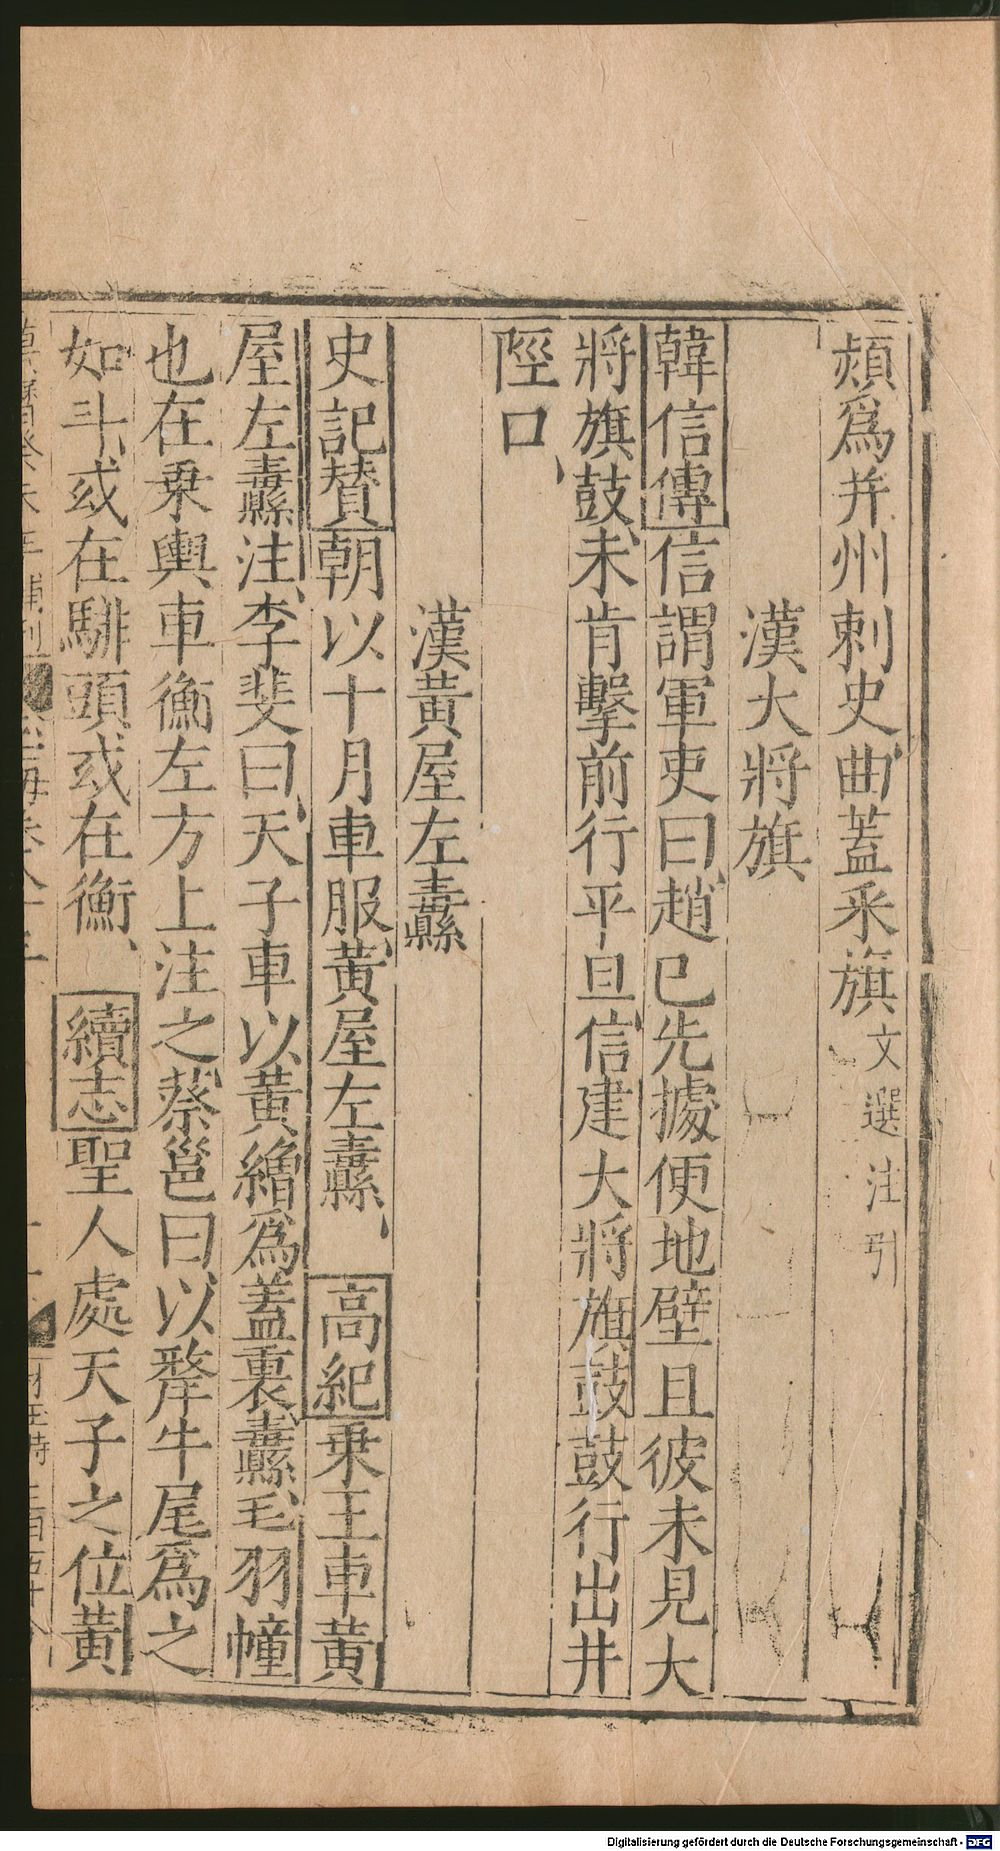 頍爲并州刺史曲蓋釆旗文選注引
漢大將旗
韓信傳信謂軍吏曰趙已先據便地壁且彼未見大
將旗鼓未肯擊前行平旦信建大將旗鼓鼓行出井
陘口、
漢黃屋左纛
史記贊朝以十月車服黃屋左纛、高紀乗王車黃
屋左纛注李斐曰天子車以黃繒爲蓋裏纛毛羽幢
也在乗輿車衡左方上注之蔡邕曰以犛牛尾爲之
如斗、或在騑頭或在衡、續志聖人處天子之位黃
Digitalisierung gefördert durch die Deutsche Forschungsgemeinschaft - DFG